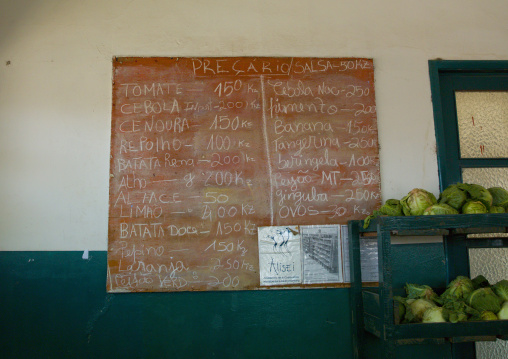 PREÇÁRIO/SALSA-50KZ
TOMATE - 150 Kz
CEBOLA - 200 Kz
CENOURA - 150 Kz
REPOLHO - 100 Kz
BATATA Rena - 200 Kz
Alho - 200 Kz
ALFACE - 50
LIMÃO - 400 Kz
BATATA Doce - 150 Kz
Pepino - 150 Kz
Laranja - 250 Kz
Feijão VERDE - 200
Cebola - 250
Pimento - 200
Banana - 150
Tangerina - 250
berinjela - 100
Feijão MT - 250
ginguba - 250
OVOS - 30 Kz
Alisei